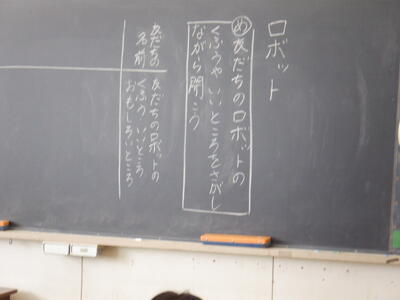 ロボット
め 友だちのロボットの
くふうや いいところをさがし
ながら聞こう
友だちの
名前
友だちのロボットの
くふう いいところ
おもしろいところ